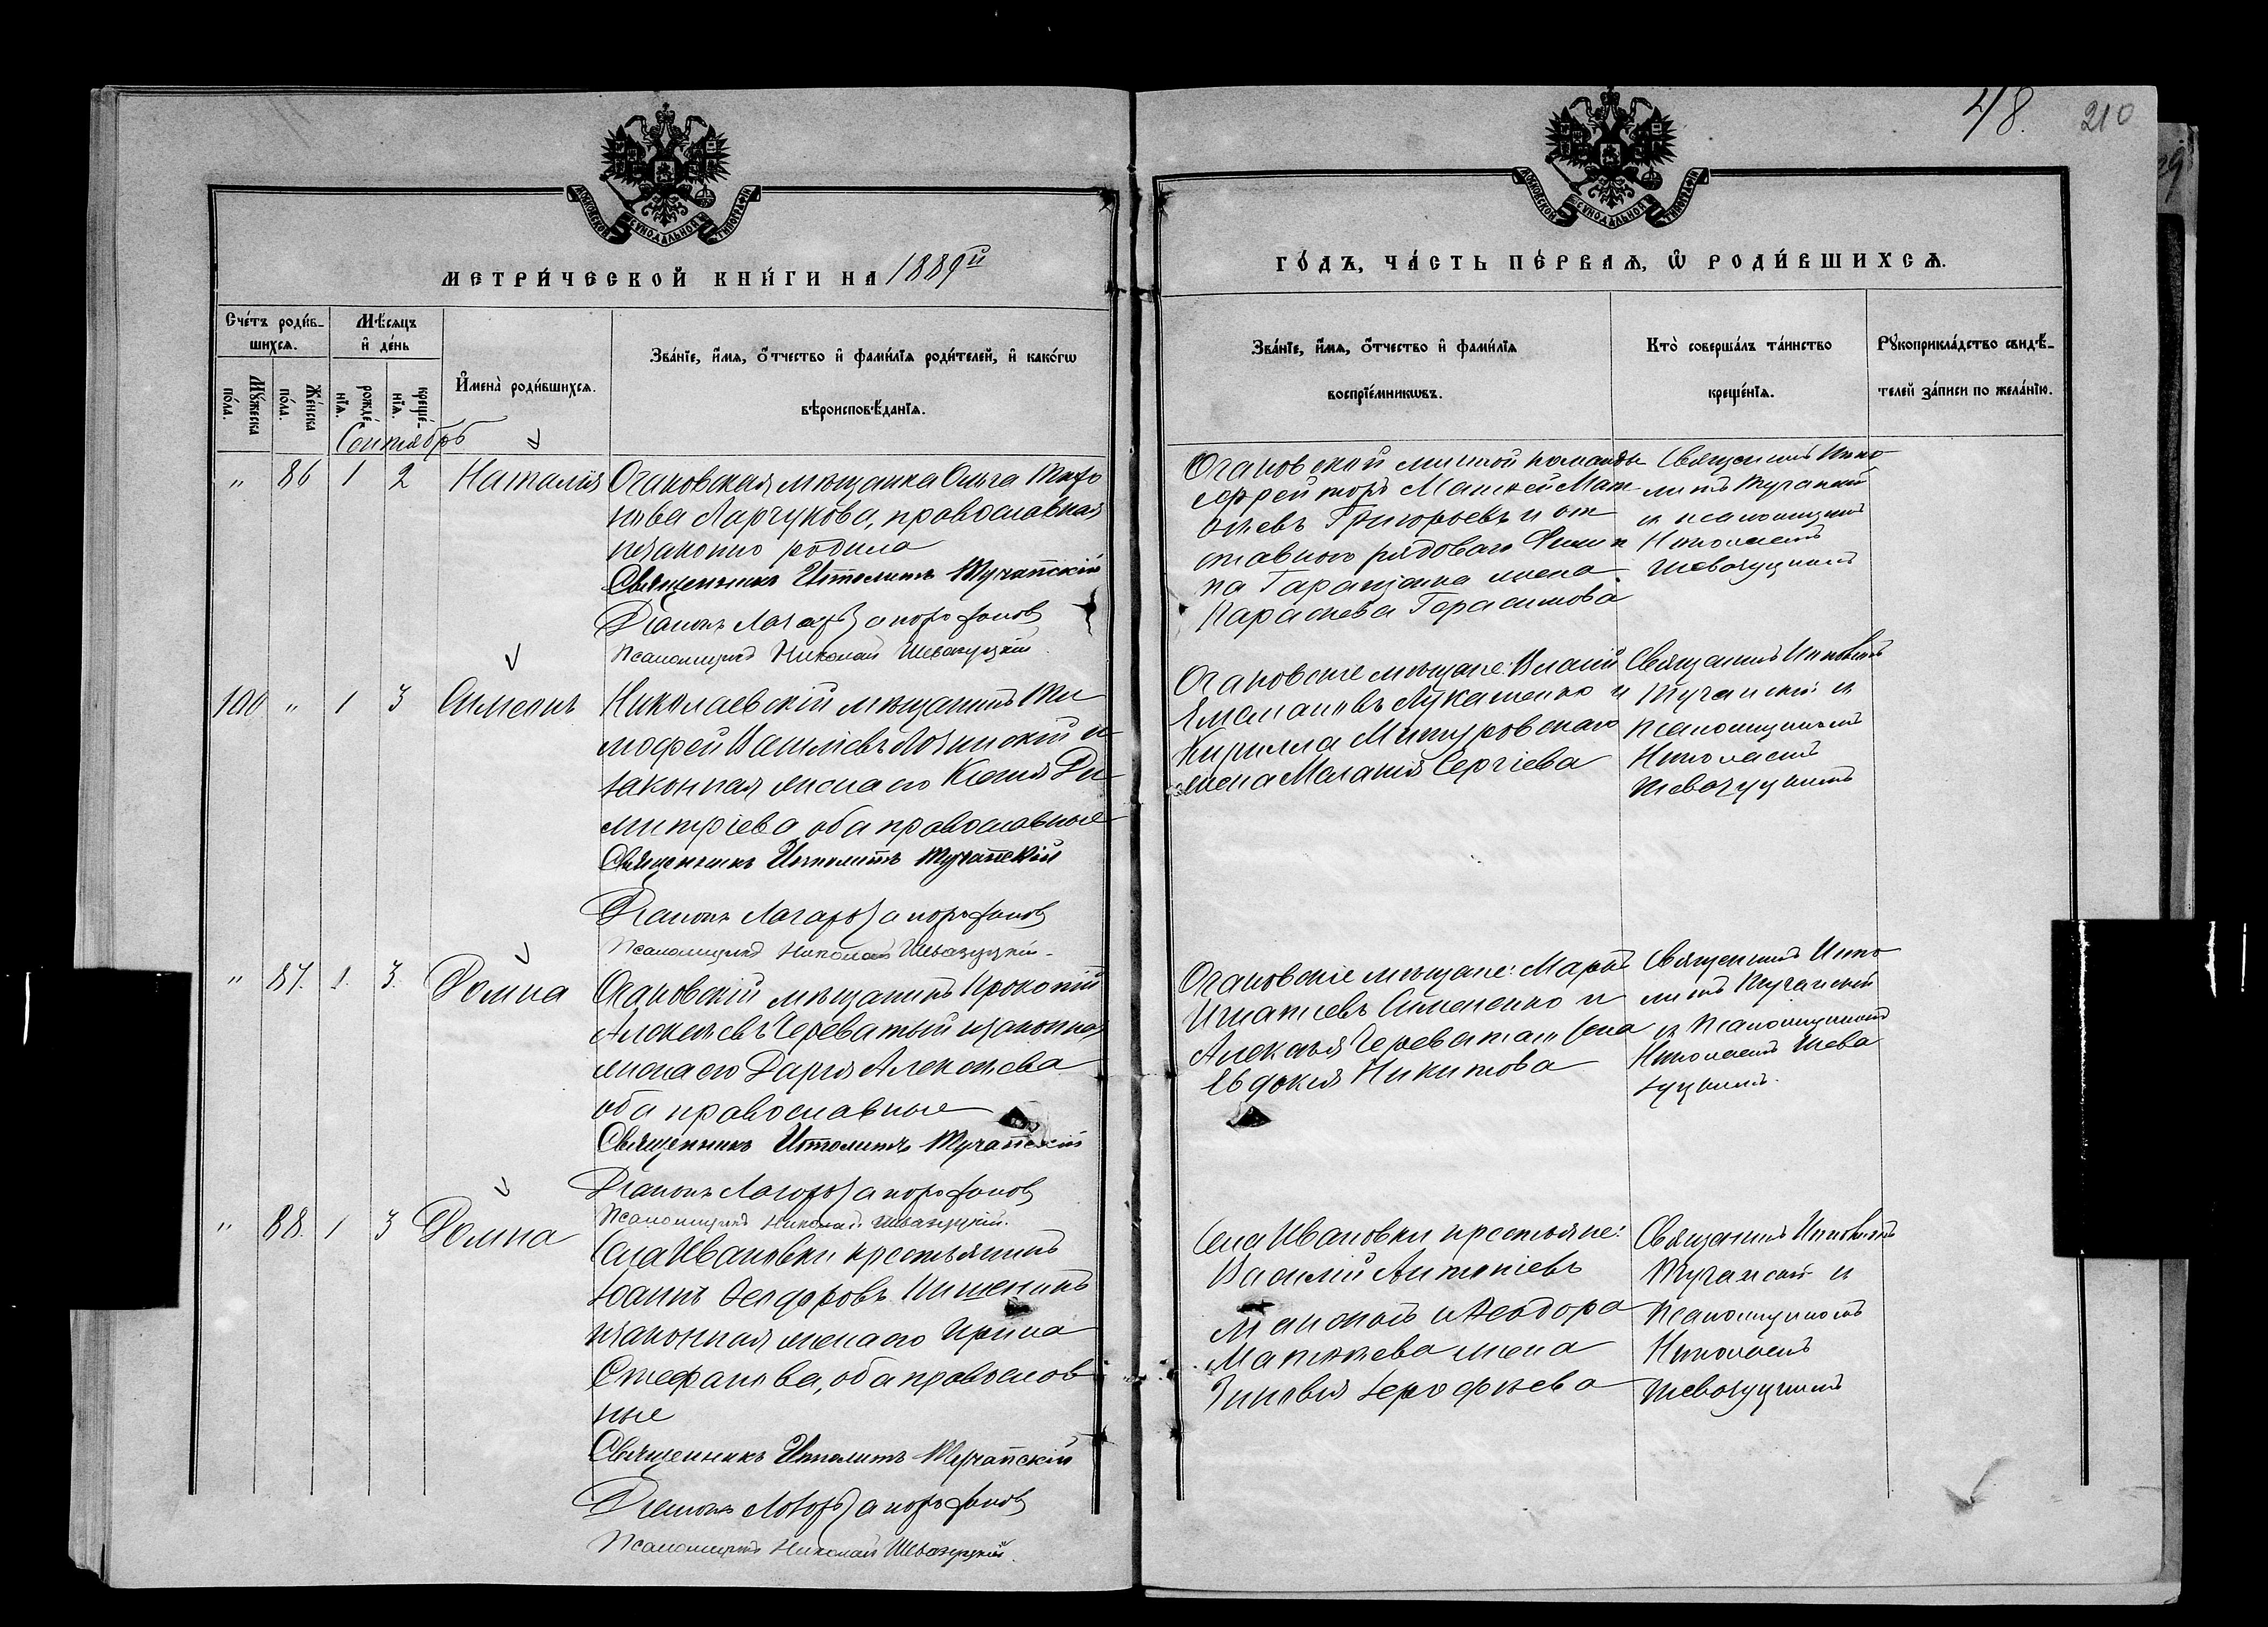 48. 210
МОСКОВСКОЙ СѴНОДАЛЬНОЙ ТИПОГРАФІИ
МОСКОВСКОЙ СѴНОДАЛЬНОЙ ТИПОГРАФІИ
МЕТРИ́ЧЕСКОЙ КНИ́ГИ НА 1889й
Сче́тъ роди́в-
шихсѧ.
Мѣ́сѧцъ
и҆ де́нь
Мꙋ́жеска
по́ла.
Же́нска
по́ла.
рожде́-
нїѧ.
креще́-
нїѧ.
И҆мена̀ роди́вшихсѧ.
Зва́нїе, и҆́мѧ, ѻ҆́тчество и҆ фами́лїѧ роди́телей, и҆ како́гѡ
вѣроисповѣ́данїѧ.
Сентябрь
" 86 1 2 Наталія
Очаковская мѣщанка Ольга Тихо
нова Ларчукова, православная
незаконно родила
Священникъ Ипполитъ Тучапскій
Діаконъ Лазарь
Псаломщикъ Николай Шевазуцкій.
100 " 1 3 Симеонъ
Николаевскій мѣщанинъ Ти
мофей Васильевъ Лозинскій и
законная жена его Ксенія Ди
митріева оба православные
Священникъ Ипполитъ Тучапскій
Діаконъ Лазарь
Псаломщикъ Николай Шевазуцкій.
" 87. 1. 3. Домна
Очаковскій мѣщанинъ Прокопій
Алексѣевъ Череватый и законная
жена его Дарія Алексѣева
оба православные
Священникъ Ипполитъ Тучапскій
Діаконъ Лазарь
Псаломщикъ Николай Шевазуцкій.
" 88. 1 3 Домна
Села Ивановки крестьянинъ
Іоаннъ Ѳеодоровъ
и законная жена его Ирина
Стефанова, оба православ
ные
Священникъ Ипполитъ Тучапскій
Діаконъ Лазарь
Псаломщикъ Николай Шевазуцкій.
ГО́ДЪ, ЧА́СТЬ ПЕ́РВАѦ, Ѡ҆ РОДИ́ВШИХСѦ.
Зва́нїе, и҆́мѧ, ѻ҆́тчество и҆ фами́лїѧ
воспрїе́мникѡвъ.
Кто̀ соверша́лъ та́инство
креще́нїѧ.
Рꙋкоприкла́дство свидѣ́-
телей за́писи по жела́нїю.
Очаковской минной команды
ефрейторъ Матѳей Мат
ѳѣевъ Григорьевъ и от
ставного рядового Филип
па Таранцана жена
Параскева Герасимова
Священникъ Иппо
литъ Тучапскій
и псаломщикъ
Николаемъ
Шевазуцкимъ
Очаковскіе мѣщане: Власій
Емеліановъ Лукашенко и
Кирилла Мипуровскаго
жена Меланія Сергіева
Священникъ Ипполитъ
Тучапскій и
псаломщикомъ
Николаемъ
Шевазуцкимъ
Очаковскіе мѣщане: Маркъ
Игнатіевъ Симоненко и
Алексѣя Череватаго жена
Евдокія Никитова
Священникъ Иппо
литъ Тучапскій
и псаломщикомъ
Николаемъ Шева
зуцкимъ.
Села Ивановки крестьяне:
Василій Антоніевъ
и Ѳеодора
Матѳѣева жена
Зиновія Ерофѣева
Священникъ Ипполитъ
Тучапскій и
псаломщикомъ
Николаемъ
Шевазуцкимъ